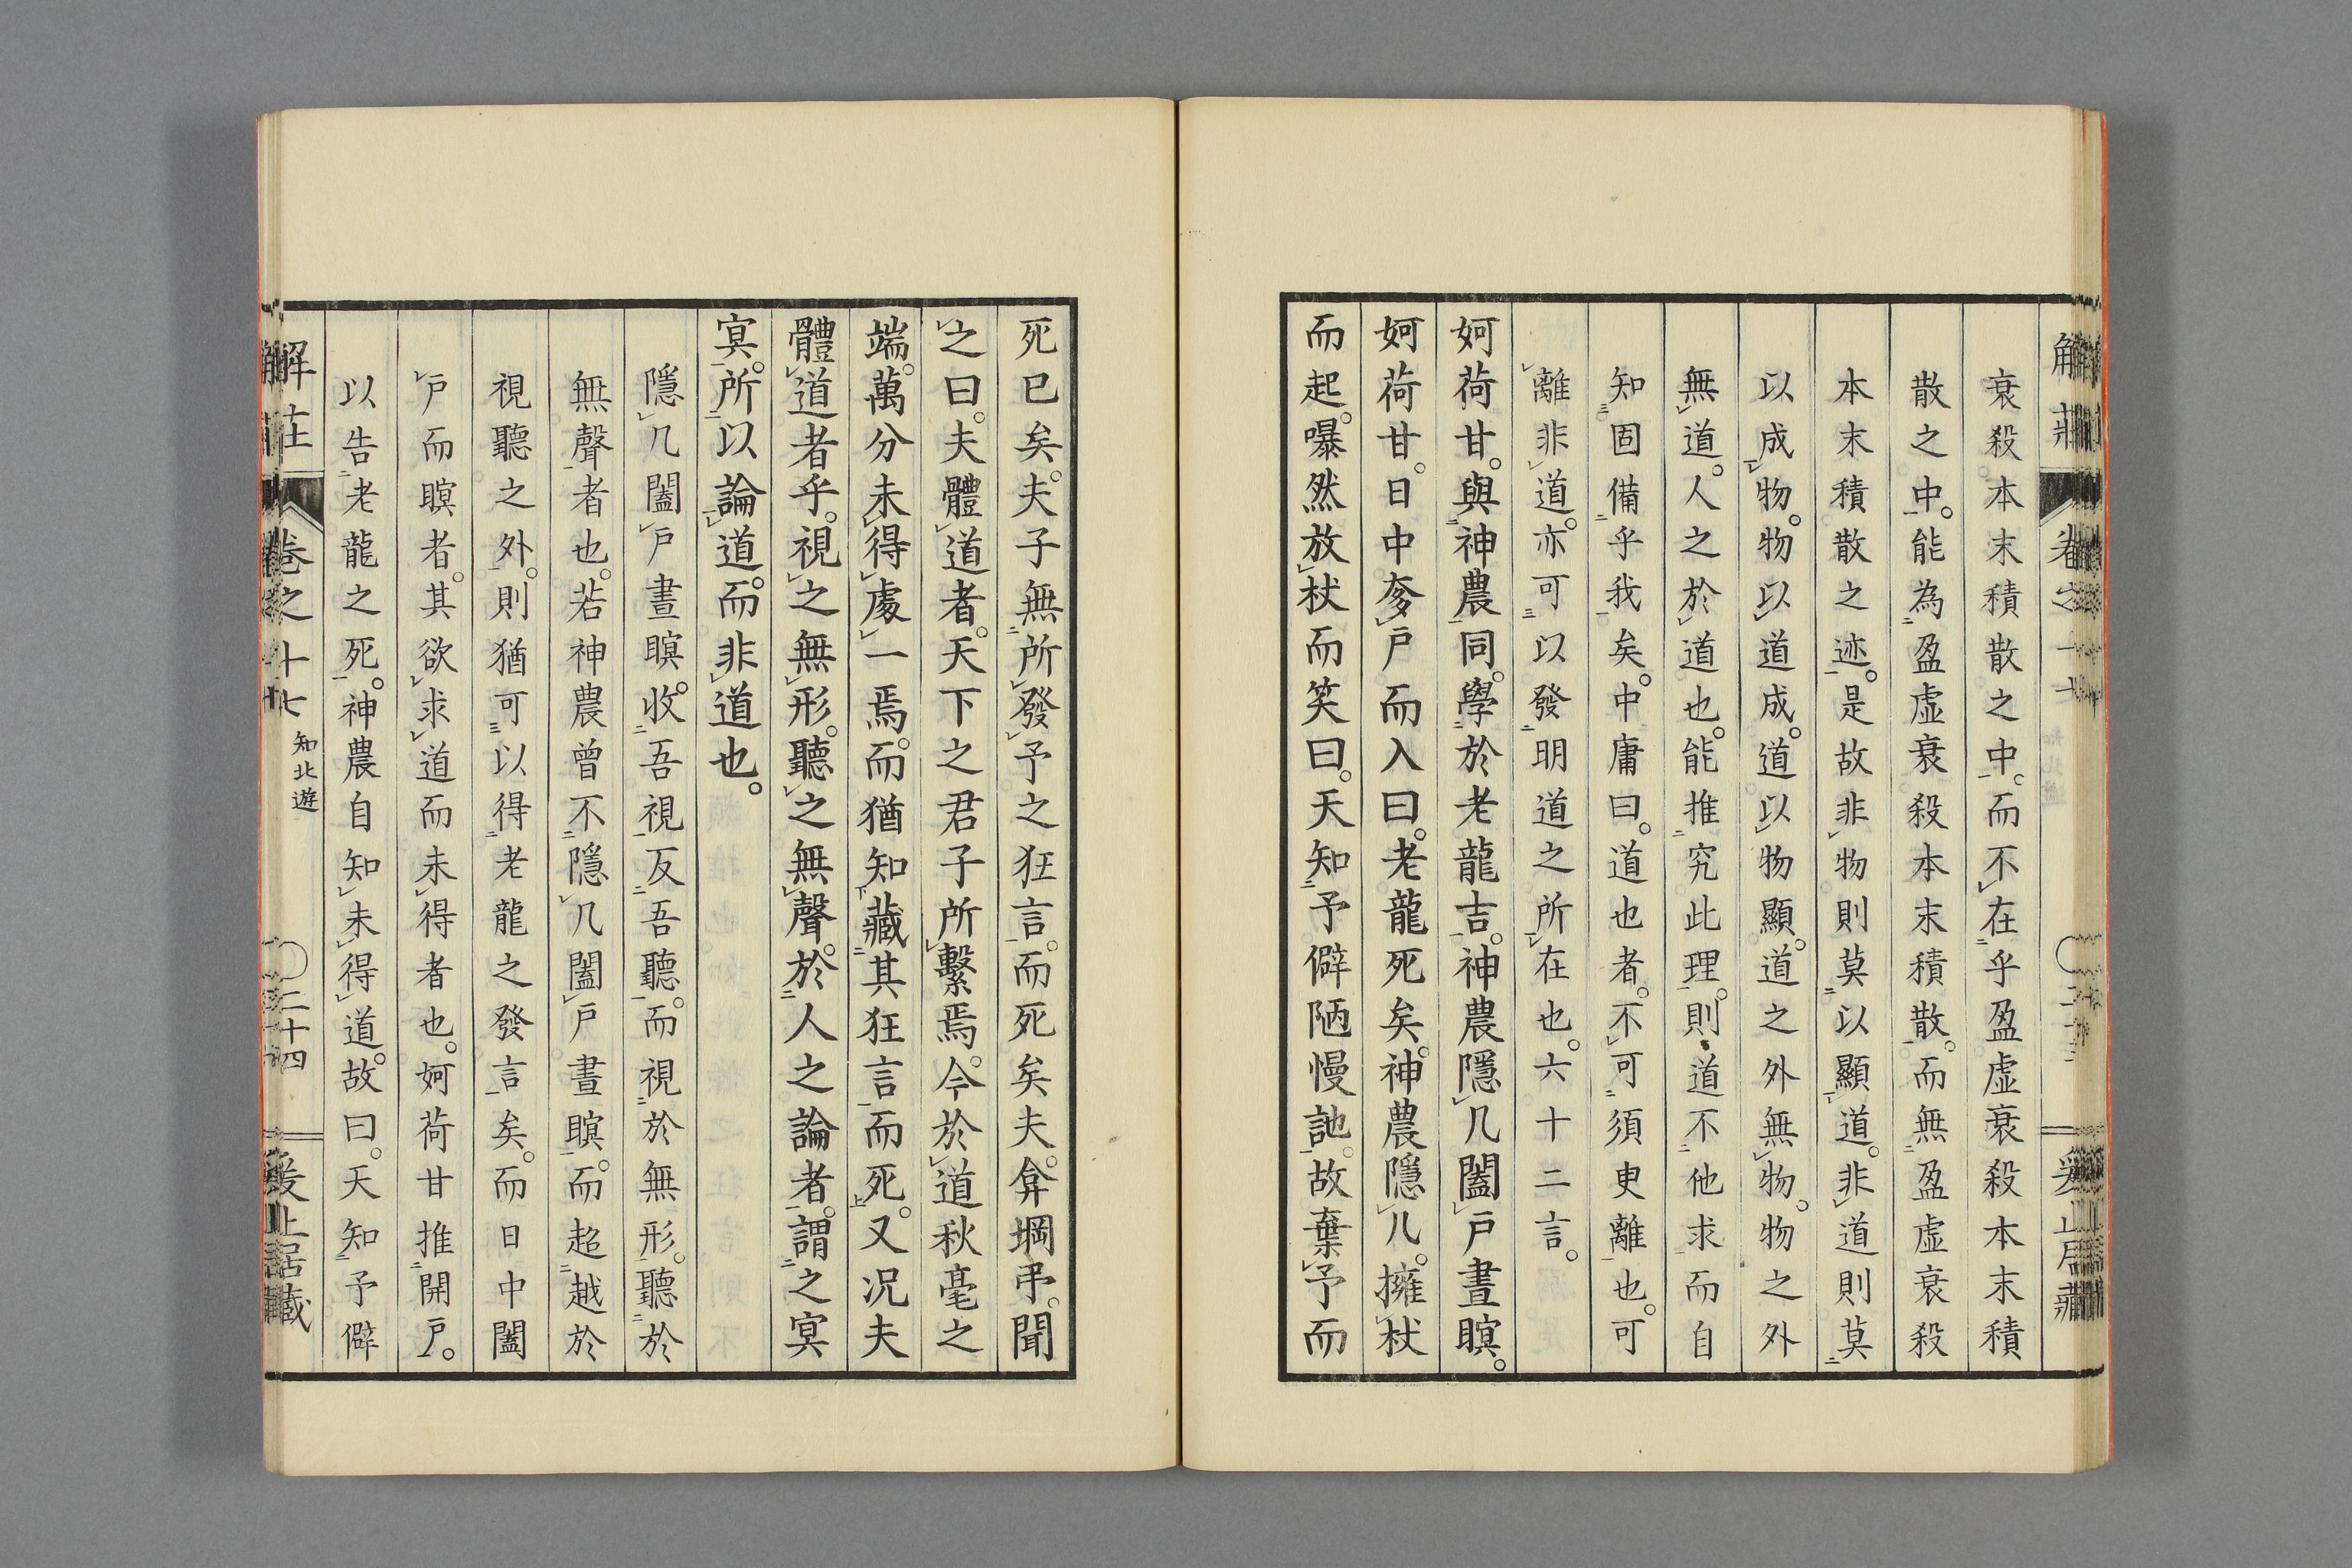 衰殺本末積散之中。而不在乎盈虛衰殺本末積
散之中。能為盈虛衰殺本末積散。而無盈虛衰殺
本末積散之迹。是故非物則莫以顯道。非道則莫
以成物。物以道成。道以物顯。道之外無物。物之外
無道。人之於道也。能推究此理。則道不他求而自
知固備乎我矣。中庸曰。道也者。不可須臾離也。可
離非道。亦可以發明道之所在也。六十二言。
妸荷甘。與神農同。學於老龍吉。神農隱几闔戶晝瞑。
妸荷甘。日中奓戶而入曰。老龍死矣。神農隱几。擁杖
而起。嚗然放杖而笑曰。天知予僻陋慢訑。故棄予而
死已矣。夫子無所發予之狂言。而死矣夫。弇堈弔。聞
之曰。夫體道者。天下之君子所繫焉。今於道秋毫之
端。萬分未得處一焉。而猶知藏其狂言而死。又況夫
體道者乎。視之無形。聽之無聲。於人之論者。謂之冥
冥。所以論道。而非道也。
隱几闔戶晝瞑。收吾視反吾聽。而視於無形。聽於
無聲者也。若神農曾不隱几闔戶晝瞑。而超越於
視聽之外。則猶可以得老龍之發言矣。而日中闔
戶而瞑者。其欲求道而未得者也。妸荷甘推開戶。
以告老龍之死。神農自知未得道。故曰。天知予僻
解莊 卷之十七 知北遊 二十四 爰止居藏